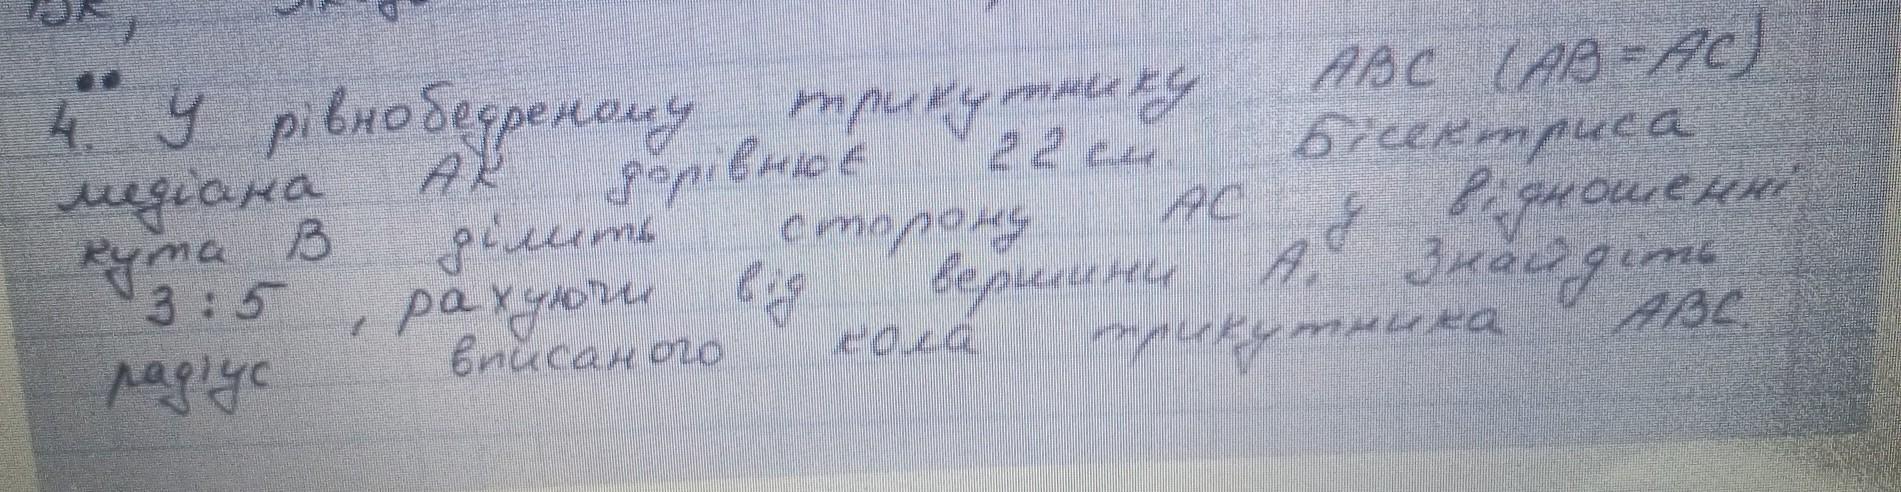 4. У рівнобедреному трикутнику ABC (AB=AC)
медіана AK дорівнює 22 см. Бісектриса
кута B ділить сторону AC у відношенні
3:5, рахуючи від вершини A. Знайдіть
радіус вписаного кола трикутника ABC.